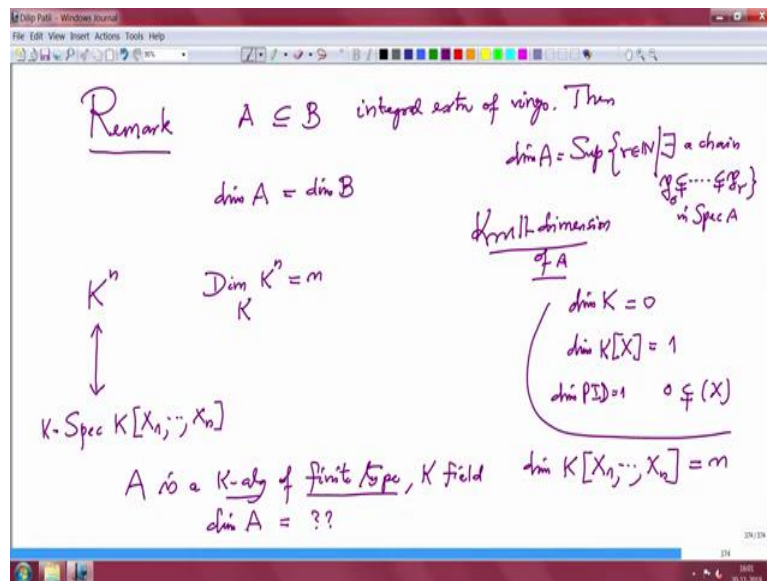 Dilip Patil - Windows Journal
File Edit View Insert Actions Tools Help
Remark A ⊆ B integral extn of rings. Then
dim A = Sup {r∈ℕ | ∃ a chain
𝔭₀ ⊊ ···· ⊊ 𝔭ᵣ}
in Spec A
dim A = dim B
Krull dimension
of A
Kⁿ Dim Kⁿ = n
K
dim K = 0
dim K[X] = 1
dim PID = 1 0 ⊊ (X)
K-Spec K[X₁,...,Xₙ]
dim K[X₁,...,Xₙ] = n
A is a K-alg of finite type, K field
dim A = ??
374/374
374
16:01